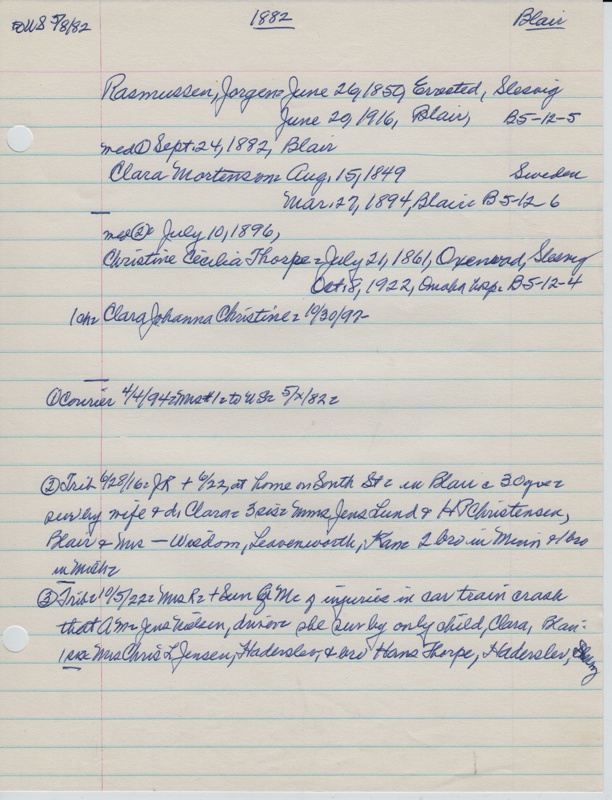 5/8/82 1882 Blair
Rasmussen, Jorgen = June 26, 1850, Errested, Slesvig
June 20, 1916, Blair, B5-12-5
med① Sept. 24, 1892, Blair
Clara Mortenson = Aug. 15, 1849 Sweden
Mar. 27, 1894, Blair = B5-12-6
med② July 10, 1896,
Christine Cecilia Thorpe = July 21, 1861, Oxenvad, Slesvig
Oct. 8, 1922, Omaha Hosp = B5-12-4
1 ch = Clara Johanna Christine = 10/30/97-
① Courier 4/4/94 = Mrs #1 = to US = 5/x/82 =
② Trib 6/28/16 = JR + 6/22, at home on South St = in Blair = 30 yrs =
surv by wife & d, Clara = 3 sis = Mmes Jens Lund & HP Christensen,
Blair & Mrs — Wisdom, Leavenworth, Kan = 2 bro in Minn & 1 bro
in Mich =
③ Trib = 10/5/22 = Mrs R = + Sun of injuries in car train crash
that A Mc Jens Nielsen, driver = she surv by only child, Clara, Blair =
1 sis = Mrs Chris L Jensen, Haderslev, & bro Hans Thorpe, Haderslev, Slesvig